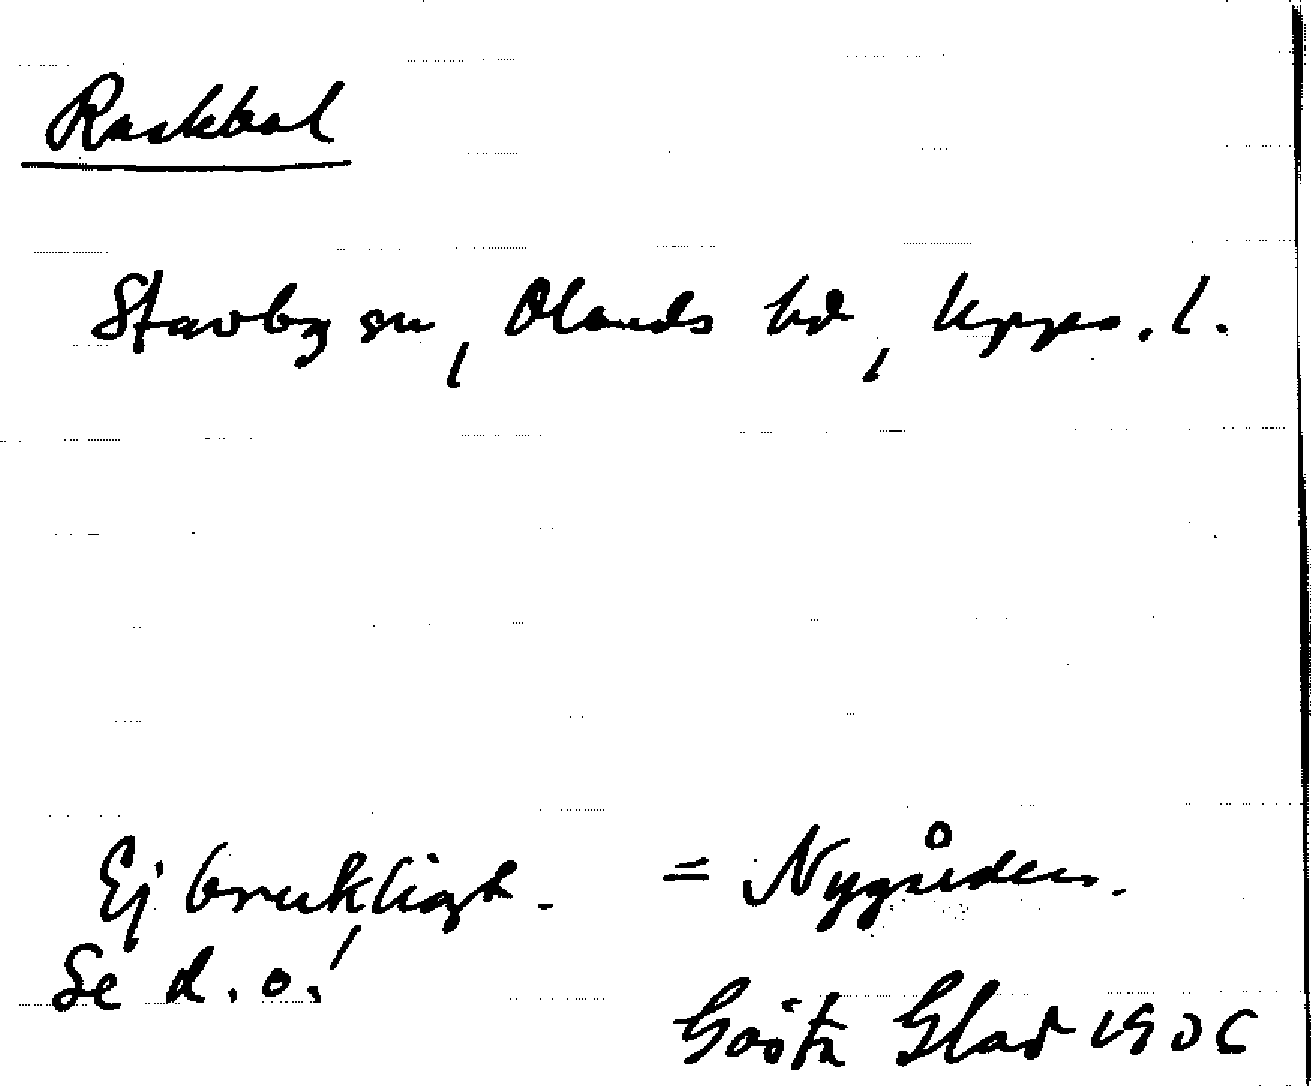 Rackbol
Stavby sn, Olands hd, Upps. l.
Ej brukligt. = Nygården.
Se d. o.!
Gösta Glad 1906